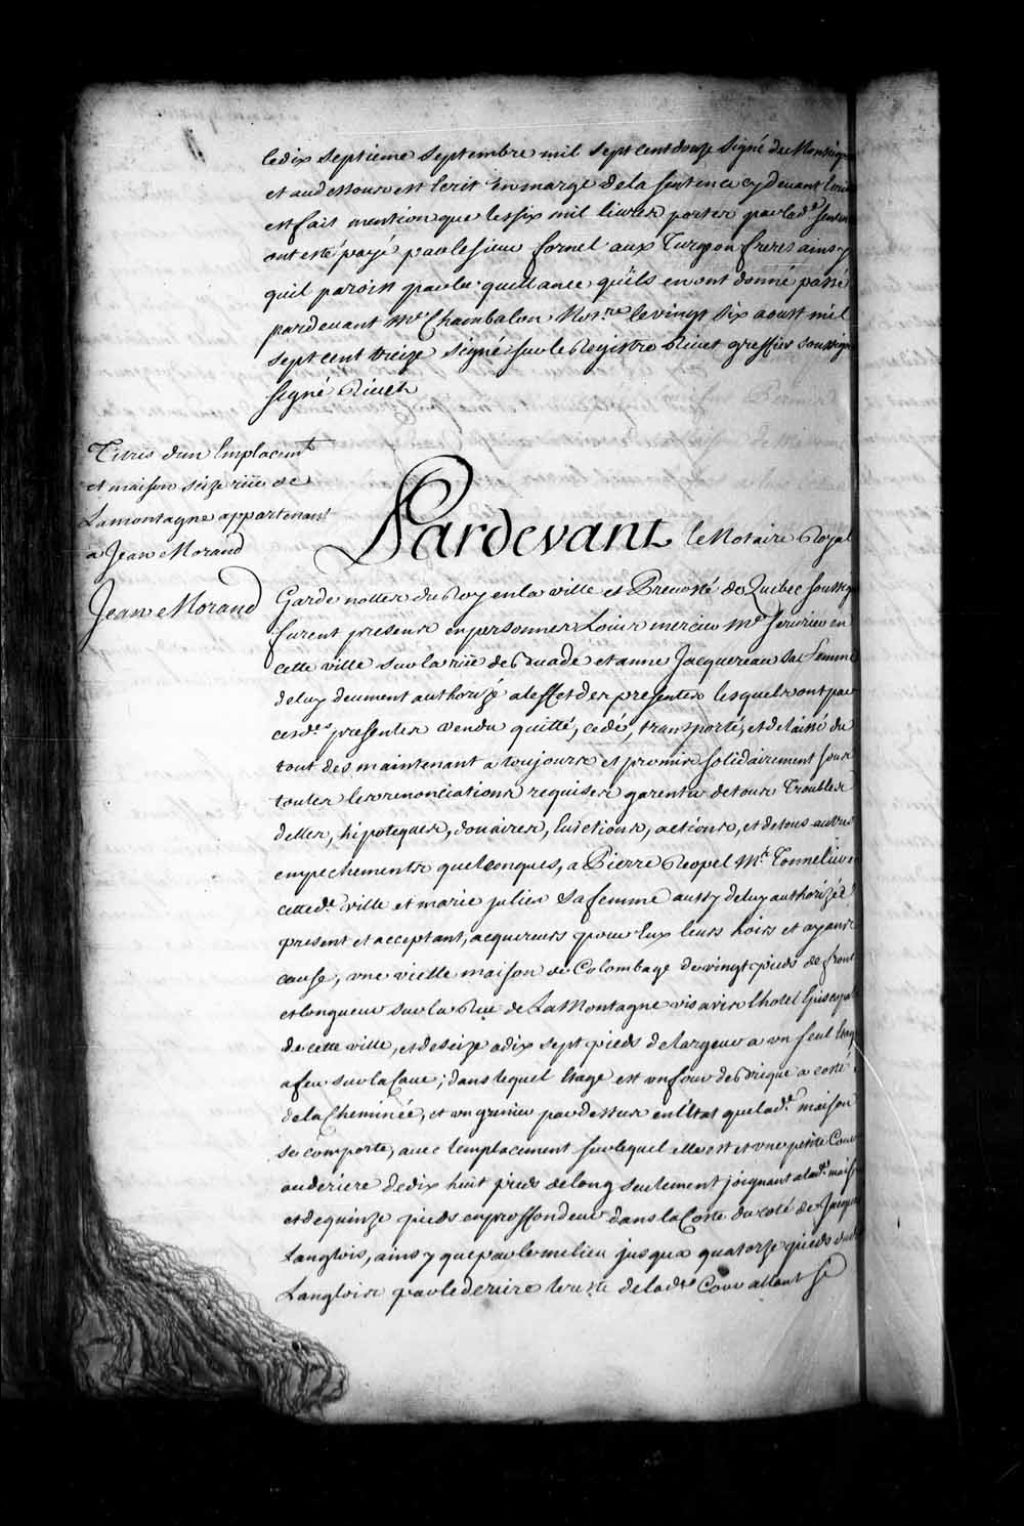 ledix septieme Septembre mil Sept cent douze Signé du Monseign
et audessous est Ecrit En marge dela sentence cydevant
est fait mention que lessix mil livres portez par lad.e senten
ont esté payé par lesieur fornel aux Turgeon freres ainsy
quil paroist par la quittance quils en ont donné passé
pardevant Me Chambalon Not.re le vingt six aoust mil
sept cent treize Signé sur le Registre Rivet greffier soussign
signé Rivet
Titres dun Emplacem.t
et maison scize rüe de
Lamontagne appartenant
a Jean Morand
Jean Morand
Pardevant le Notaire Royal
Garde nottes du Roy en la ville et Prevosté de Quebec soussig
furent presens en personnes Louis mercier Me Serurier en
cette ville sur la rüe de Buade et anne Jacquereau sa femme
de luy deument authorizé a leffet des presentes lesquels ont par
cesd.es presentes vendu quitté, cedé, transporté, et delaissé du
tout des maintenant a toujours et promis solidairement sous
toutes les renonciations requises garentir de tous Troubles
dettes, hipoteques, douaires, Evictions, actions, et de tous autres
empechements quelconques, a Pierre Reopel M.e Tonnelier
cetted.e ville et marie julien sa femme aussy de luy authorizée
present et acceptant, acquereurs pour Eux leurs hoirs et ayans
cause, une vielle maison de Colombage de vingt pieds de front
et longueur sur la Rue de La Montagne vis avis lhotel Episcopal
de cette ville, et de seize a dix sept pieds de largeur a un seul Etage
a feu sur la Cave; dans lequel Etage est un four de brique a costé
de la Cheminée, et un grenier par dessus en l'Etat que lad.e maison
se comporte, avec lemplacement sur lequel elle est et une petite Cour
au deriere de dix huit pieds de long seulement joignant a lad.e maison
et de quinze pieds en proffondeur dans la Coste du coté de Jacques
Langlois, ainsy que par le melieu jusqua quatorze pieds dud
Langlois par le deriere le reste de lad.e Cour allant se